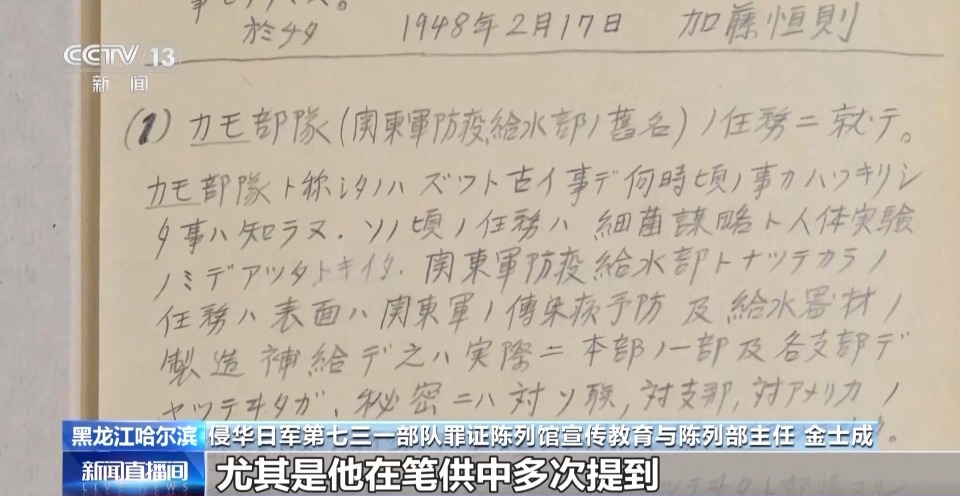 於チタ 1948年2月17日 加藤恒則
CCTV 13
新闻
(1) カモ部隊(関東軍防疫給水部ノ舊名)ノ任務ニ就テ。
カモ部隊ト称シタノハ ズット古イ事デ何時頃ノ事カハツキリシ
タ事ハ知ラヌ. ソノ頃ノ任務ハ 細菌謀略ト人体実験
ノミデアツタトキイタ. 関東軍防疫給水部トナツテカラノ
任務ハ表面ハ関東軍ノ傳染病予防 及 給水器材ノ
製造補給デ之ハ実際ニ本部ノ一部及各支部デ
ヤツテヰタガ, 秘密ニハ対ソ聯, 対支那, 対アメリカノ
黑龙江哈尔滨 侵华日军第七三一部队罪证陈列馆宣传教育与陈列部主任 金士成
新闻直播间 尤其是他在笔供中多次提到
LIVE NEWS